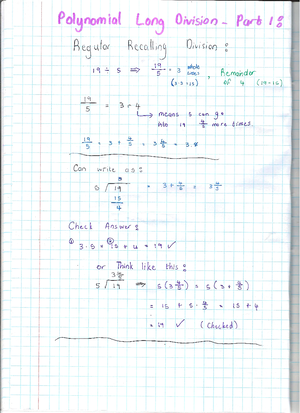 Polynomial Long Division - Part 1:
Regular Recalling Division:
19 ÷ 5 ⇒ 19/5 = 3 whole times (3·5=15), Remainder of 4 (19-15)
19/5 = 3 + 4
→ means 5 can go
into 19 4/5 more times.
19/5 = 3 + 4/5 = 3 4/5 = 3.8
Can write as:
3
5 √19 = 3 + 4/5 = 3 4/5
15
4
Check Answer:
3·5 = 15 + 4 = 19 ✓
or Think like this:
3 4/5
5 √19 ⇒ 5(3 4/5) = 5(3 + 4/5)
= 15 + 5·4/5 = 15 + 4
= 19 ✓ (Checked)